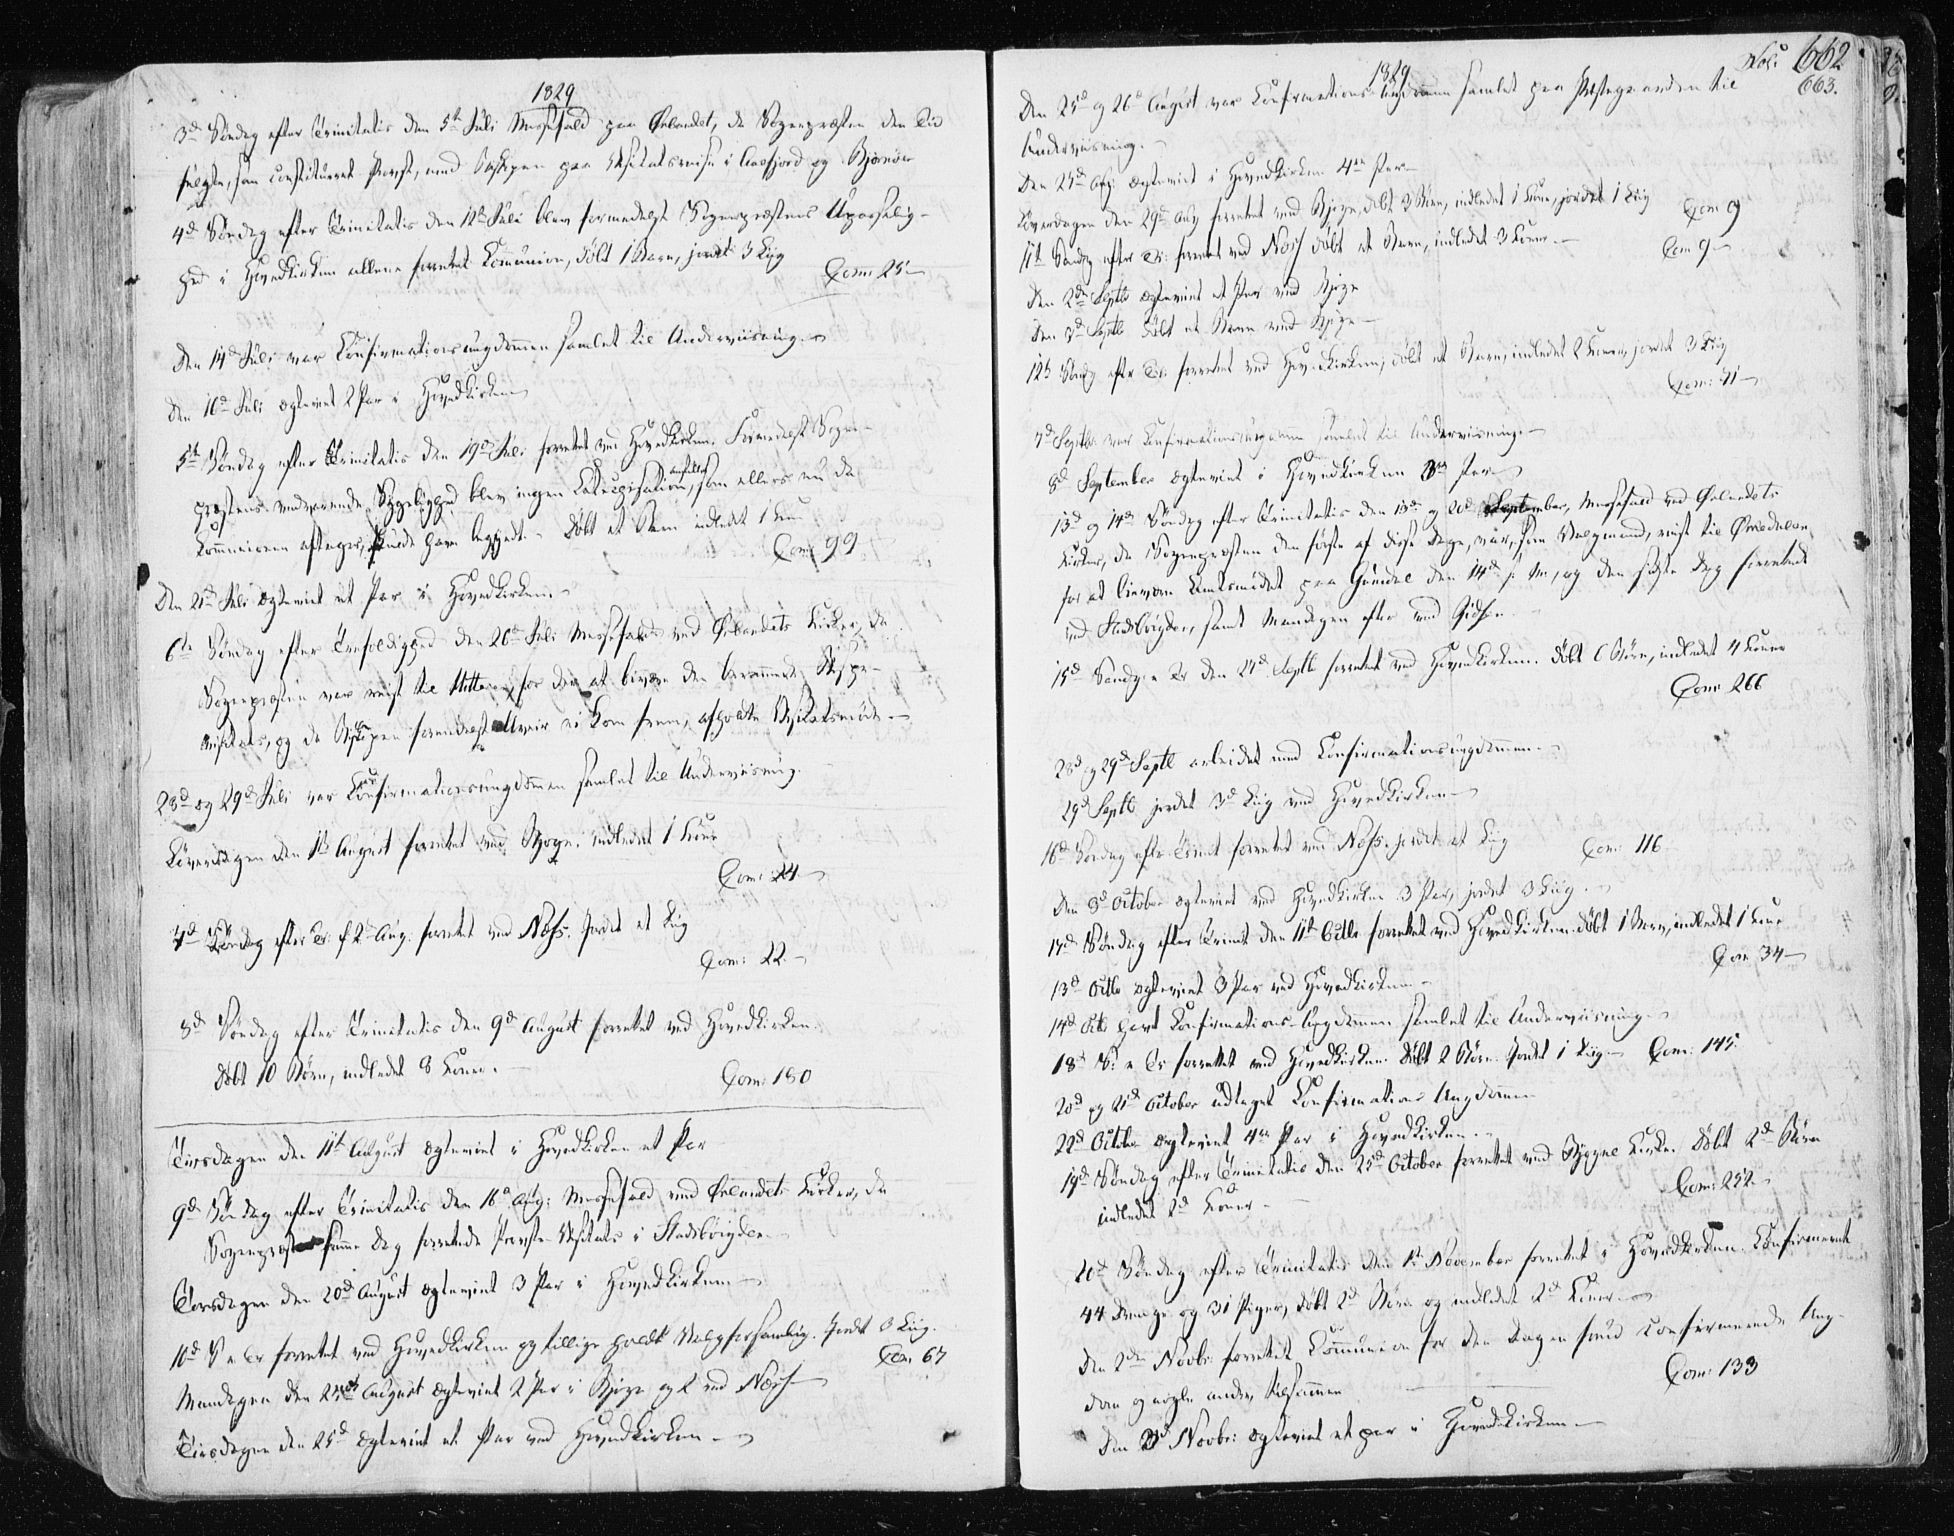 1829
3d Søndag efter Trinitatis den 5te Juli Messefald paa Ørlandet, da Sognepræsten den Tid
fulgte, som constitueret Provst, med Bispen paa Visitatsreise i Aafjord og Bjørnør
4d Søndag efter Trinitatis den 12te Juli blev formedelst Sognepræstens Upasselig-
hed i Hovedkirken allene forrettet Communion, døbt 1 Barn, jordet 3 Liig
Com: 25
Den 14d Juli var Confirmationsungdommen samlet til Underviisning
Den 16d Juli ægteviet 2 Par i Hovedkirken
5te Søndag efter Trinitatis den 19de Juli forrettet ved Hovedkirken. Formedelst Sogne-
præstens vedvarende Sygelighed blev ingen Catechisation anstillet, som ellers nu da
Communionen aftager, skulde have begyndt. Døbt et Barn indledet 1 Kone
Com: 99
Den 21d Juli ægteviet et Par i Hovedkirken
6te Søndag efter Trefoldighed den 26de Juli Messefald ved Ørlandets Kirker, da
Sognepræsten var reist til Hitteren, for der at bivære den berammede Bispe-
visitats, og da Bispen formedelst Uveir ei kom frem, afholdte Visitatsmøde
28d og 29d Juli var Confirmationsungdommen samlet til Underviisning.
Løverdagen den 1te August forrettet ved Bjugn. indledet 1 Kone
Com: 24
7d Søndag efter Tr: d 2d Aug. forrettet ved Næss. Jordet et Liig
Com: 22
8d Søndag efter Trinitatis den 9d August forrettet ved Hovedkirken.
Døbt 10 Børn, indledet 8 Koner.
Com: 180
Tirsdagen den 11te August ægteviet i Hovedkirken et Par
9d Søndag efter Trinitatis den 16d Aug: Messefald ved Ørlandets Kirker, da
Sognepræsten samme Dag forrettede Provste-Visitats i Stadsbøigden
Torsdagen den 20d August ægteviet 3 Par i Hovedkirken
10d S e Tr forrettet ved Hovedkirken og tillige holdt Valgforsamling. Jordet 3 Liig.
Com 67
Mandagen den 24de August ægteviet 2 Par i Bjugn og 2 ved Næss
Tirsdagen den 25d ægteviet et Par ved Hovedkirken
1829
Fol: 662
663.
Den 25d og 26d August var Confirmations-Ungdommen samlet paa Præstegaarden til
Underviisning.
Den 25d Aug: ægteviet i Hovedkirken 4re Par
Løverdagen den 29de Aug forrettet ved Bjugn, døbt 3 Børn, indledet 1 Kone, jordet 1 Liig
Com 9
11te Søndag efter Tr: forrettet ved Næss døbt et Barn, indledet 3 Koner
Com 9
Den 2de Septb ægteviet et Par ved Bjugn
Den 3d Septb døbt et Barn ved Bjugn
12te Søndag efter Tr: forrettet ved Hovedkirken, døbt et Barn, indledet 2 Koner, jordet 3 Liig
Com: 41
7d Septbr var Confirmationsungdommen samlet til Underviisning
8d September ægteviet i Hovedkirken 3de Par
13d og 14d Søndag efter Trinitatis den 13de og 20d September, Messefald ved Ørlandets
Kirker, da Sognepræsten den første af disse Dage, var, som Valgmand, reist til Ørkedalen
for at bivære Amtsmødet paa Grindal den 14d s: M:, og den sidste Dag forrettede
ved Stadsbøigden, samt Mandagen efter ved
15d Søndag e Tr den 27d Septb forrettet ved Hovedkirken. Døbt 6 Børn, indledet 4 Koner
Com: 266
28d og 29d Septb arbeidet med Confirmationsungdommen
29d Septb jordet 3d Liig ved Hovedkirken
16d Søndag efter Trinit forrettet ved Næss. jordet et Liig Com: 116
Den 8d October ægteviet ved Hovedkirken 3 Par, jordet 3 Liig.
17d Søndag efter Trinit: den 11te Octbr forrettet ved Hovedkirken. Døbt 1 Barn, indledet 1 Kone
Com 34
13d Octbr ægteviet 3 Par ved Hovedkirken
14d Octb havt Confirmations-Ungdommen samlet til Underviisning
18d S: e Tr forrettet ved Hovedkirken. Døbt 2 Børn. Jordet 1 Liig Com: 145
20d og 21d October udtaget Confirmations Ungdommen
22d Octbr ægteviet 4re Par i Hovedkirken
19d Søndag efter Trinitatis den 25d October forrettet ved Bjugn Kirke. Døbt 2d Børn
indledet 2d Koner
Com: 252
20d Søndag efter Trinitatis den 1te November forrettet i Hovedkirken. Confirmeret
44 Drenge og 31 Piger, døbt 2d Børn og indledet 2d Koner
Den 2den Novbr: forrettet Communion for den Dagen forud confirmerede Ung-
dom og nogle andre tilsammen
Com: 133
Den 3d Novbr: ægteviet et par i Hovedkirken